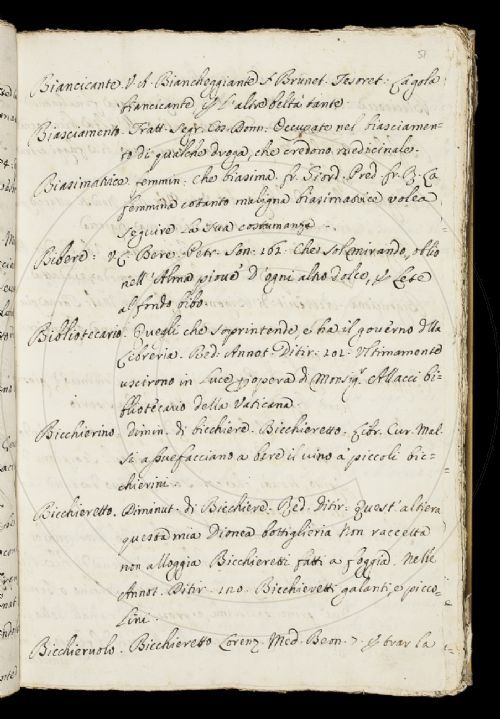 51
Biancicante. V. A. Biancheggiante. S. Brunet. Tesoret: La gola
biancicante, e l'altre beltà tante.
Biasciamento. Tratt. Segr. Cos. Donn. Occupate nel biasciamen-
to di qualche droga, che credono medicinale.
Biasimatrice. femmin: che biasima. fr. Giord. Pred. fr. R. La
femmina cotanto maligna biasimatrice volea
seguire la sua costumanza.
Bibere: V. L. Bere. Petr. Son. 162. Che sol mirando, oblio
nell'Alma piove d'ogni altro dolce, e Lete
al fondo bibo.
Bibliotecario. Quegli che soprintende, e ha il governo della
Libreria. Red: Annot: Ditir: 201. Ultimamente
uscirono in luce per opera di Monsig.r Allacci bi-
bliotecario della Vaticana.
Bicchierino. Dimin. di bicchiere. Bicchieretto. Libr. Cur. Mal.
Si assuefacciano a bere il vino a piccoli bic-
chierini.
Bicchieretto. Diminut. di Bicchiere. Red. Ditir: Quest'altiera,
questa mia Dionea bottiglieria Non raccetta
non alloggia Bicchieretti fatti a foggia. Nelle
Annot. Ditir. 120. Bicchieretti galanti, e picco-
lini.
Bicchieruolo. Bicchieretto Lorenz. Med. Beon. 7. E trar la